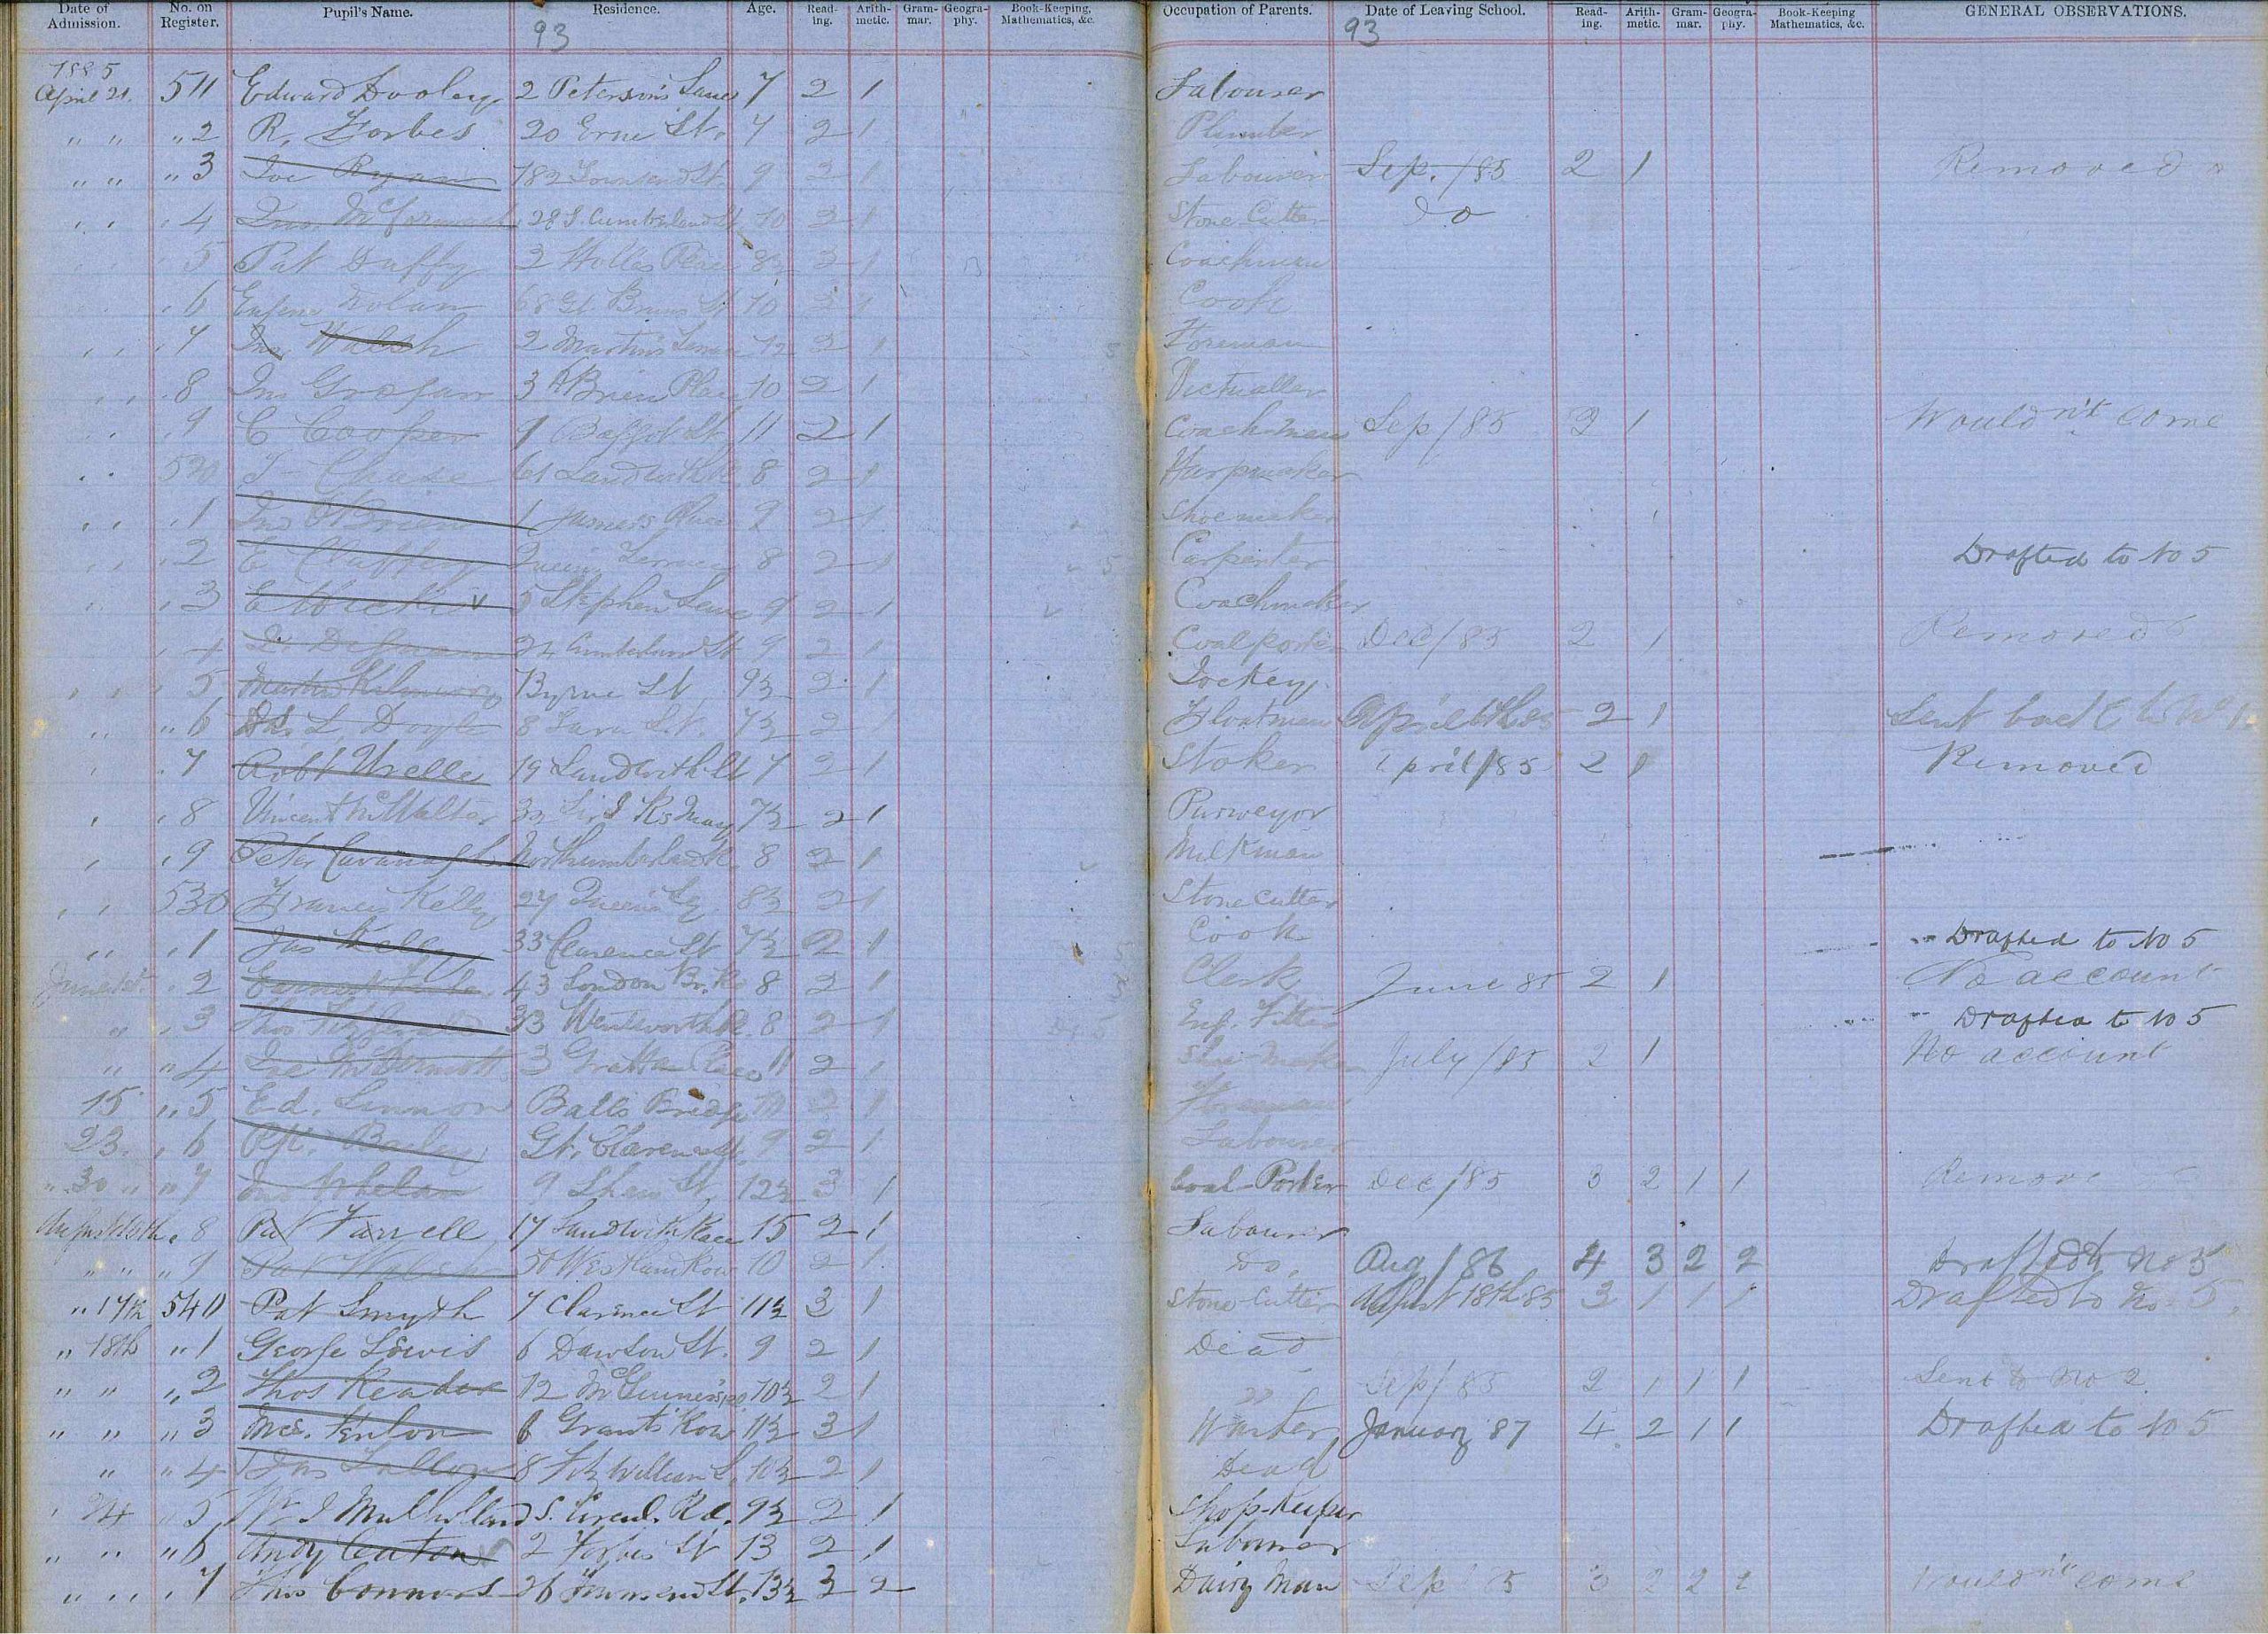 Date of Admission. No. on Register. Pupil's Name. Residence. Age. Read-ing. Arith-metic. Gram-mar. Geogra-phy. Book-Keeping, Mathematics, &c. Occupation of Parents. Date of Leaving School. Read-ing. Arith-metic. Gram-mar. Geogra-phy. Book-Keeping Mathematics, &c. GENERAL OBSERVATIONS.
93 93
1885
April 21. 511 Edward Dooley 2 Peterson's Lane 7 2 1 Labourer
" " " 2 R. Forbes 20 Erne St. 7 2 1 Plumber
" " " 3 Joe Ryan 182 Townsend St. 9 2 1 Labourer Sep. /85 2 1 Removed
" " " 4 Jno. McCormack 28 S. Cumberland St 10 2 1 Stone Cutter do
5 Pat Duffy 2 Hollis Place 8½ 2 1 Coachman
" 6 Eugene Nolan 68 Gt. Bruns St 10 2 1 Cook
" " " 7 Jno Walsh 2 Martin's Terrace 12 2 1 Foreman
" " " 8 Jno Grogan 3 O'Brien Place 10 2 1 Victualler
" " " 9 C Cooper 9 Baggot St. 11 2 1 Coach-man Sep /85 2 1 Wouldn't come
" " 520 J Chase 61 Sandwith St. 8 2 1 Harpmaker
" " " 1 Jno O'Brien 1 James's Place 9 2 1 Shoemaker
" " " 2 E Claffey Queen's Terrace 8 2 1 Carpenter Drafted to No 5
" " 3 E 5 Stephen Lane 9 2 1 Coachmaker
" 4 24 Cumberland St 9 2 1 Coalporter Dec /85 2 1 Removed
" " " 5 Martin Byrne St 9½ 2 1 Jockey
" " " 6 L. Doyle 8 St. 7½ 2 1 Floatman April 85 2 1 Sent back to No 1
" " 7 Robt Urelle 19 Sandwith St 7 2 1 Stoker April /85 2 1 Removed
" " 8 Vincent McWalter 32 Sir J R's Quay 7½ 2 1 Purveyor
" " 9 Peter Cavanagh Northumberland 8 2 1 Milkman
" " 530 Francis Kelly 27 Queen's Sq. 8½ 2 1 Stone cutter
" " " 1 Jas Kelly 33 Clarence St 7½ 2 1 Cook Drafted to No 5
June 1st " 2 43 London Br. Rd 8 2 1 Clerk June 85 2 1 No account
" " 3 Thos 33 Wentworth Pl. 8 2 1 Eng. Fitter Drafted to No 5
" " 4 McDermott 3 Grattan Place 11 2 1 Shoe-maker July /85 2 1 No account
15 " 5 Ed. Lennon Balls Bridge 10 2 1 Foreman
23. " 6 Gt. Clarence St. 9 2 1 Labourer
" 30 " " 7 Jno Whelan 9 St. 12½ 3 1 Coal-Porter Dec /85 3 2 1 1 Remove
August " 8 Pat Farrell 17 Sandwith Place 15 2 1 Labourer
" " " 9 Pat Walsh 50 Westland Row 10 2 1 Do. Aug /86 4 3 2 2 Drafted to No 5
" 17th 540 Pat Smyth 7 Clarence St 11½ 3 1 Stone-Cutter August 18th 85 3 1 1 1 Drafted to No 5.
" 18th " 1 George Lewis 6 Dawson St. 9 2 1 Dead
" " " 2 Thos Reader 12 10½ 2 1 " Sep /85 2 1 1 1 Sent to No 2
" " " 3 Fenlon 6 Grants Row 11½ 3 1 January 87 4 2 1 1 Drafted to No 5
" " 4 Jas Fallon 8 Fitzwilliam 10½ 2 1 Dead
" 24 " 5 Wm J Mulholland S. Circul. Rd. 9½ 2 1 Shop-Keeper
" " " 6 Andy Ceaton 2 Forbes St 13 2 1 Labourer
" " " 7 Thos Connors 26 Townsend St. 13½ 3 2 Dairy Man Sep 85 3 2 2 2 Wouldn't come